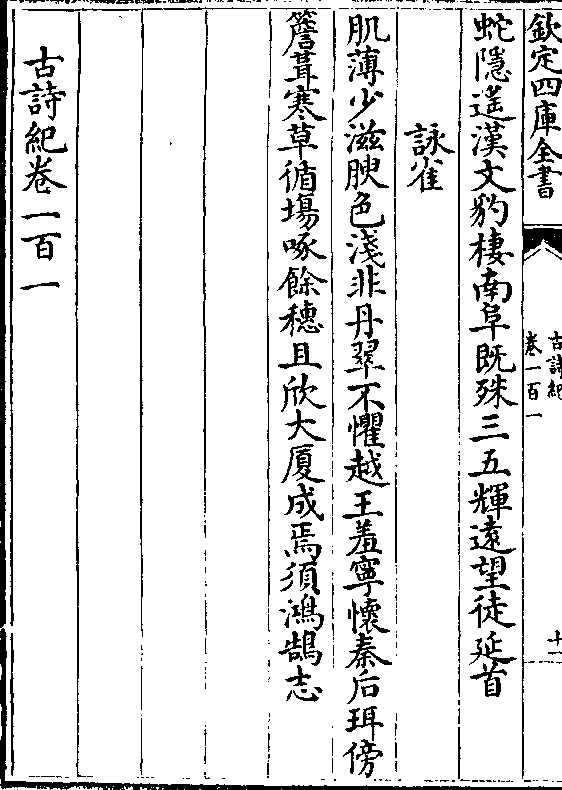 欽定四庫全書
古詩紀
卷一百一
十一
蛇隱遥漢文豹棲南阜既殊三五輝遠望徒延首
詠雀
肌薄少滋腴色淺非丹翠不懼越王羞寧懷秦后珥傍
簷葺寒草循場啄餘穗且欣大厦成焉須鴻鵠志
古詩紀卷一百一